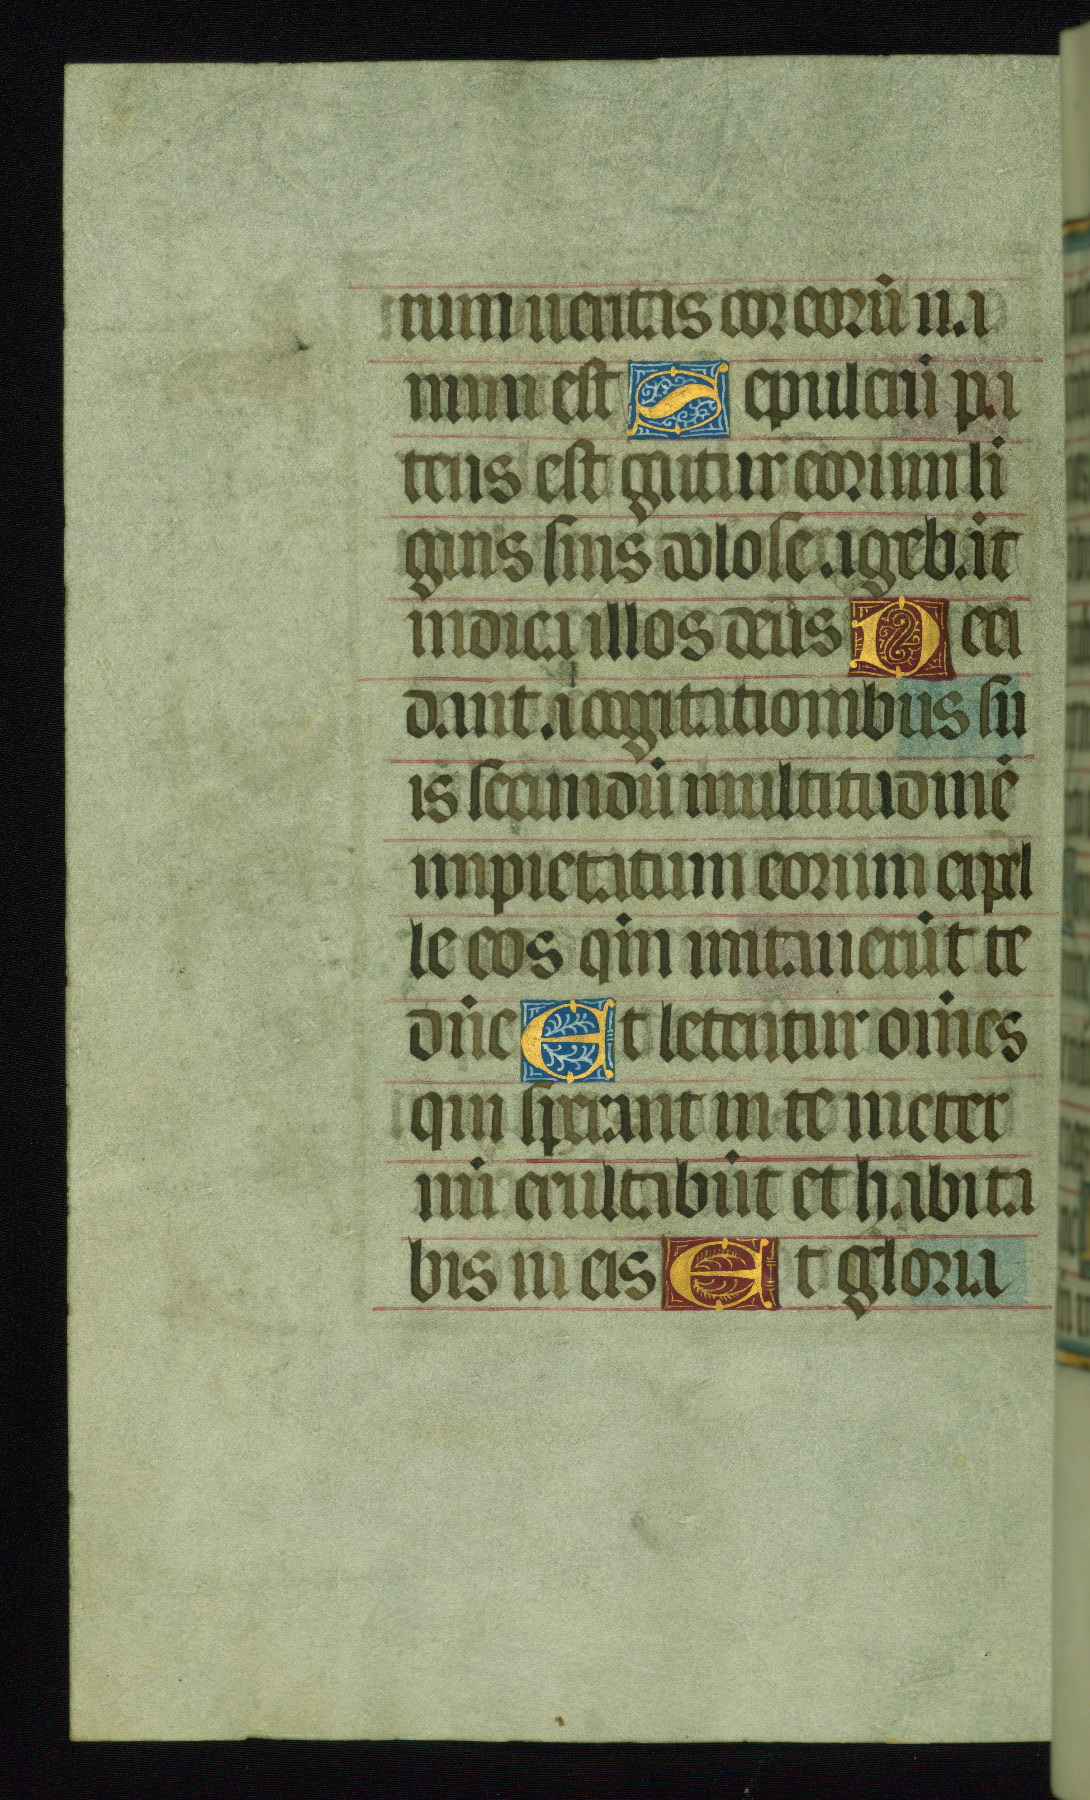 rum ueritas cor eorū ua
num est Sepulcrū pa
tens est guttur eorum li
guis suis dolose agebāt
iudica illos deus Deci
dant a cogitationibus su
is secundū multitudinē
impietatum eorum expel
le eos qm̄ irritauerūt te
dn̄e Et letentur om̄es
qui sperant in te in eter
nū exultabūt et habita
bis in eis Et gloria